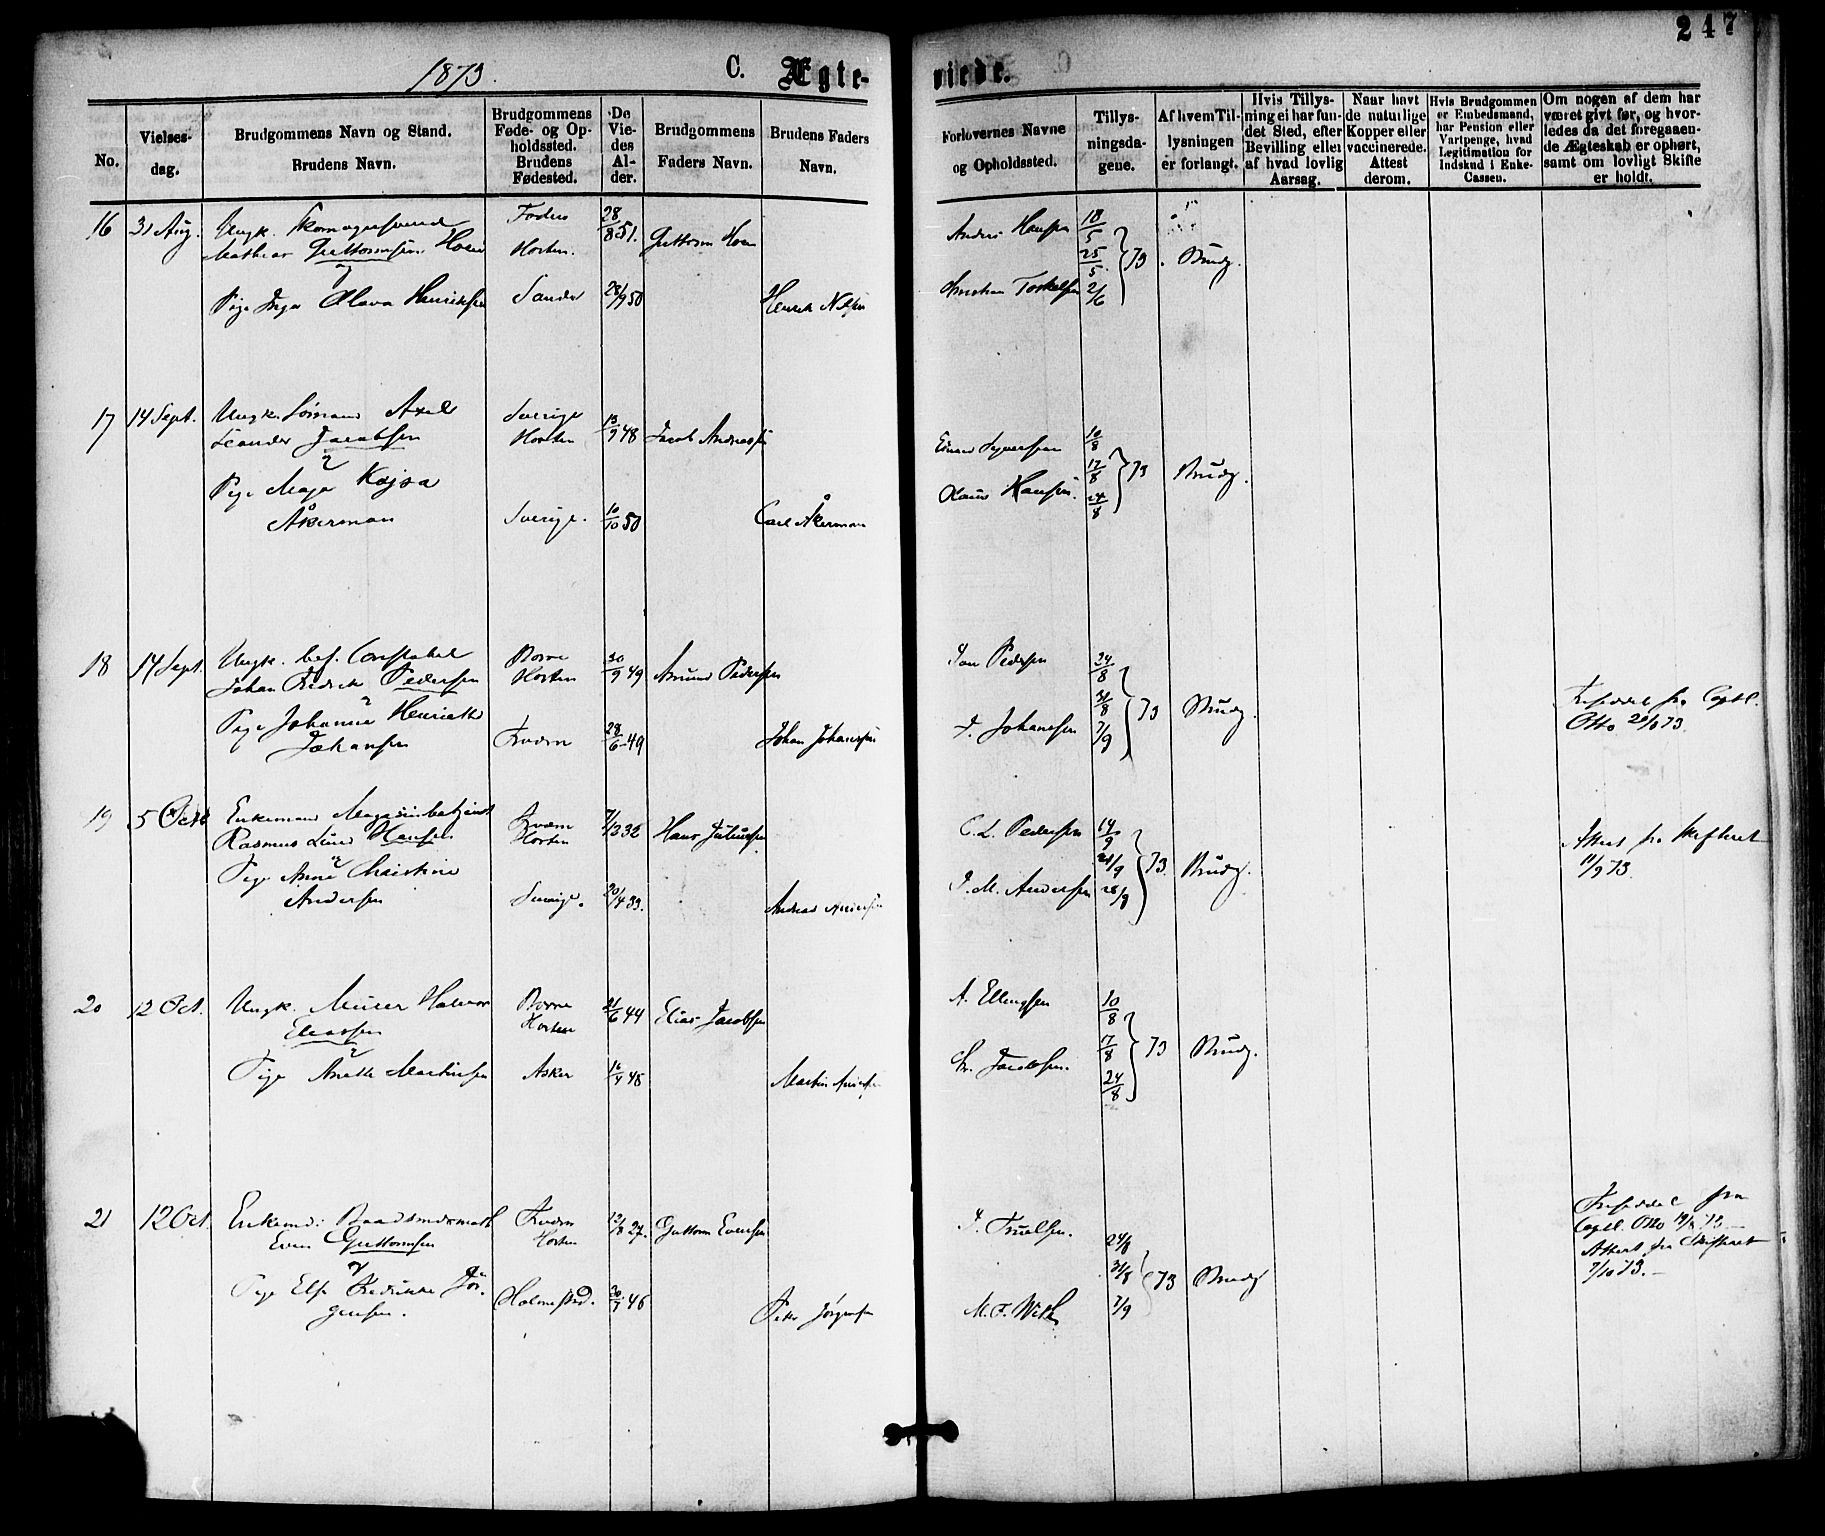 247
1873.
C. Ægteviede.
No.
Vielsesdag.
Brudgommens Navn og Stand.
Brudens Navn.
Brudgommens Føde- og Opholdssted.
Brudens Fødested.
De Viedes Alder.
Brudgommens Faders Navn.
Brudens Faders Navn.
Forlovernes Navne og Opholdssted.
Tillysningsdagene.
Af hvem Tillysningen er forlangt.
Hvis Tillysning ei har fundet Sted, efter Bevilling eller af hvad lovlig Aarsag.
Naar havt de naturlige Kopper eller vaccinerede. Attest derom.
Hvis Brudgommen er Embedsmand, har Pension eller Vartpenge, hvad Legitimation for Indskud i Enke-Cassen.
Om nogen af dem har været givt før, og hvorledes da det foregaaende Ægteskab er ophørt, samt om lovligt Skifte er holdt.
16 31 Aug. Ungk. Skomagersvend
Mathias Guttormsen Hoen
Horten. 28/8 51. Guttorm Hoen
og
Pige Inga Olava Henriksen Sander 28/9 50 Henrik Nilsen
Anders Hansen 18/5
25/5 73 Brudg.
Christian Torkelsen 2/6
17 14 Sept. Ungk. Sømand Axel
Leander Jacobsen
Sverige
Horten 13/9 48 Jacob Andreassen
Pige Maja Kajsa
Åkerman Sverige. 10/10 50 Carl Åkerman
10/8
17/8 73 Brudg.
Olaus Hansen. 24/8
18 14 Sept. Ungk. bef. Constabel
Johan Fredrik Pedersen
Borre
Horten 30/9 49 Amund Pedersen
Pige Johanne Henriette
Johansen 28/6 49 Johan Johansen
Pedersen 24/8
31/8 73 Brudg.
Johansen 7/9
fra Capt.
Otto 73.
19 5 Octb Enkemand Magasinbetjent
Rasmus Lund Hansen
Horten 7/3 32 Hans Juliussen
Pige Anne Christine
Andersen Sverige. 20/4 39. Andreas Andersen
C. L. Pedersen 14/9
21/9 73. Brudg.
J. M. Andersen 28/9
Attest fra Skifteret
11/9 73.
20 12 Oct. Ungk. Murer Halvor
Eliassen
Borre
Horten 21/6 44 Elias Jacobsen
Pige Anette Martinsen Asker 16/4 48 Martin
A. Ellingsen 10/8
17/8 73 Brudg.
Jacobsen. 24/8
21 12 Oct. Enkemd. Baadsmdsmath
Even Guttormsen
Horten 12/8 27. Guttorm Evensen
Pige Fredrikke Jörgensen.
Holmestrd. 20/7 46 Peter Jörgensen
J. Truelsen. 24/8
31/8 73 Brudg
M. F. With 7/9
fra
Capt. Otto 19/8 73.
Attest fra Skifteret
7/10 73.